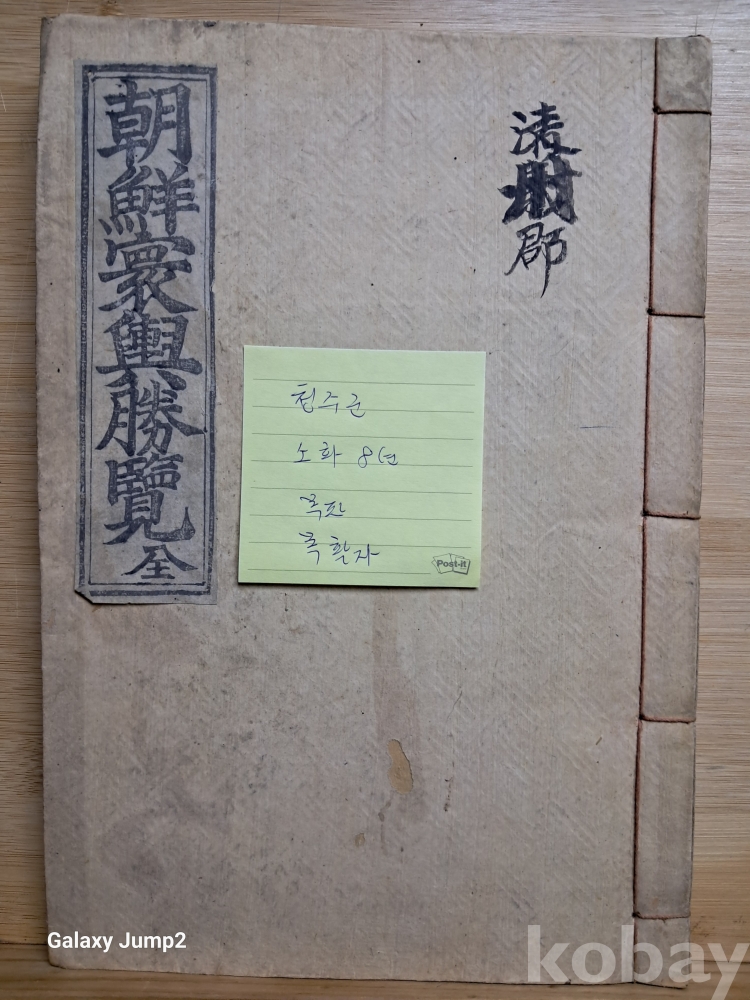 清郡
朝鮮寰輿勝覽 全
청주군
소화 8년
목판
목활자
Post-it
Galaxy Jump2
kobay